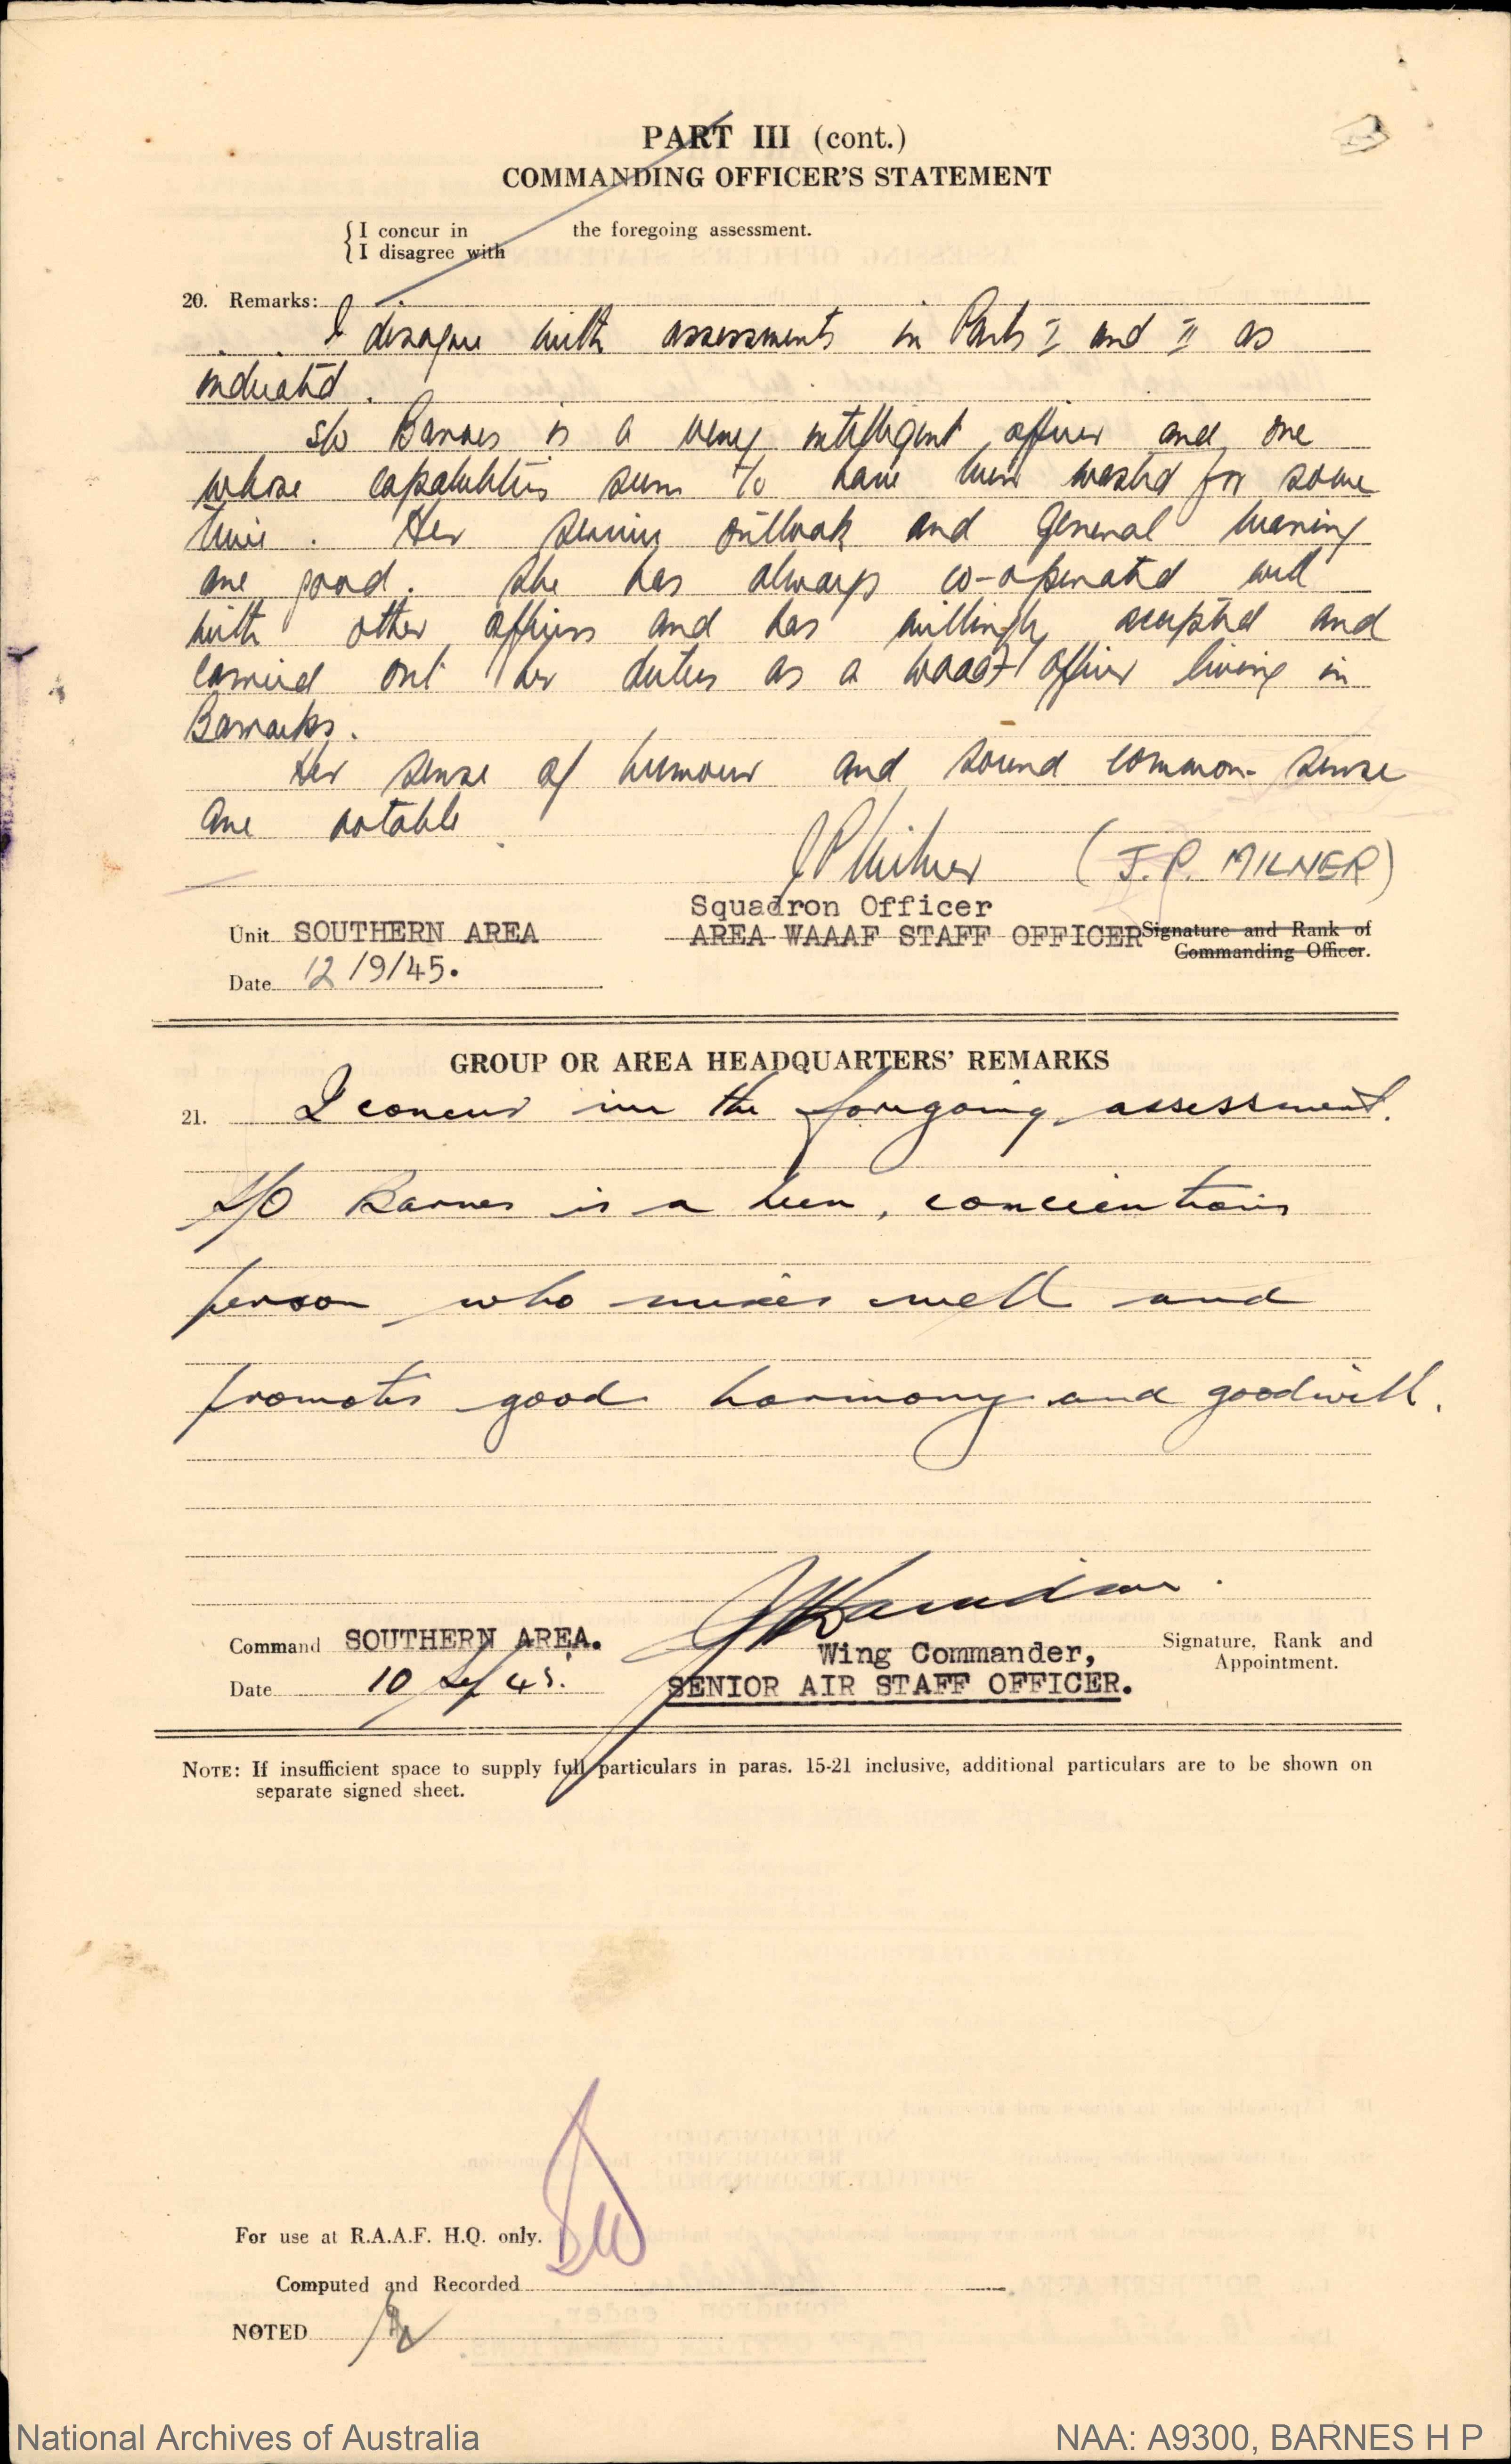 PART III (cont.)
COMMANDING OFFICER'S STATEMENT
I concur in
I disagree with
the foregoing assessment.
20. Remarks:
I disagree with assessments in Parts I and II as
indicated.
S/O Barnes is a very intelligent officer and one
whose capabilities seem to have been wasted for some
time. Her service outlook and general bearing
are good. She has always co-operated well
with other officers and has willingly accepted and
carried out her duties as a WAAAF officer living in
Barracks.
Her sense of humour and sound common-sense
are notable
JP Milner (J.P. MILNER)
Squadron Officer
Unit SOUTHERN AREA AREA WAAAF STAFF OFFICER Signature and Rank of
Commanding Officer.
Date 12/9/45.
GROUP OR AREA HEADQUARTERS' REMARKS
21. I concur in the foregoing assessment.
S/O Barnes is a keen, concientious
person who mixes well and
promotes good harmony and goodwill.
Command SOUTHERN AREA. Wing Commander, Signature, Rank and
Appointment.
Date 10 Sep 45. SENIOR AIR STAFF OFFICER.
NOTE: If insufficient space to supply full particulars in paras. 15-21 inclusive, additional particulars are to be shown on
separate signed sheet.
For use at R.A.A.F. H.Q. only.
Computed and Recorded
NOTED
National Archives of Australia NAA: A9300, BARNES H P